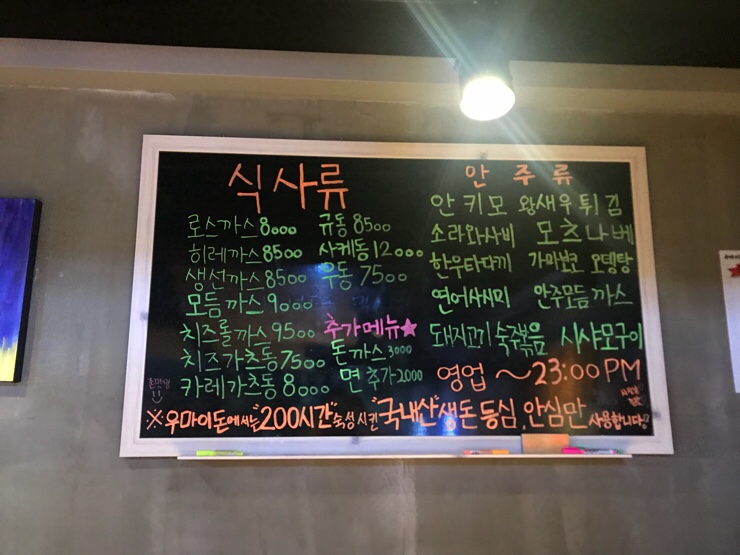 식사류
로스까스 8000
히레까스 8500
생선까스 8500
모듬까스 9000
치즈롤까스 9500
치즈가츠동 7500
카레가츠동 8000
규동 8500
사케동 12000
우동 7500
추가메뉴★
돈까스 3000
면 추가 2000
안주류
안키모 왕새우튀김
소라와사비 모츠나베
한우타다끼 오뎅탕
연어사시미 안주모듬까스
돼지고기숙주볶음 시샤모구이
영업 ~23:00 PM
※우마이돈에서는 "200시간" 숙성시킨 "국내산" 생돈 등심, 안심만 사용합니다!